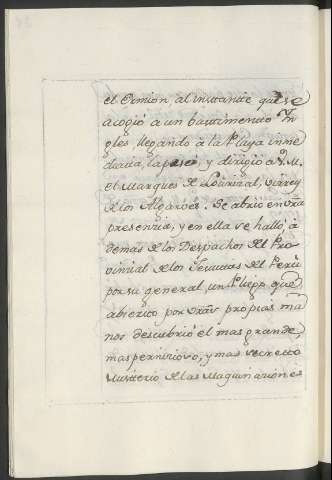 el Cimion, al instante que se
acogió a un bastimento In
gles, llegando á la Playa inme
diata, la pasó, y dirigio a V. M.
el Marques de Louriçal, Virrey
de los Algarves. Se abrio en su
presencia, y en ella se halló, á
demas de los Despachos del Pro
vinzial de los Jesuitas del Perù
por su general, un Pliego que
abierto por V.as propias ma
nos descubrió el mas grande,
mas pernizioso, y mas secretto
Misterio de las Maquinaziones